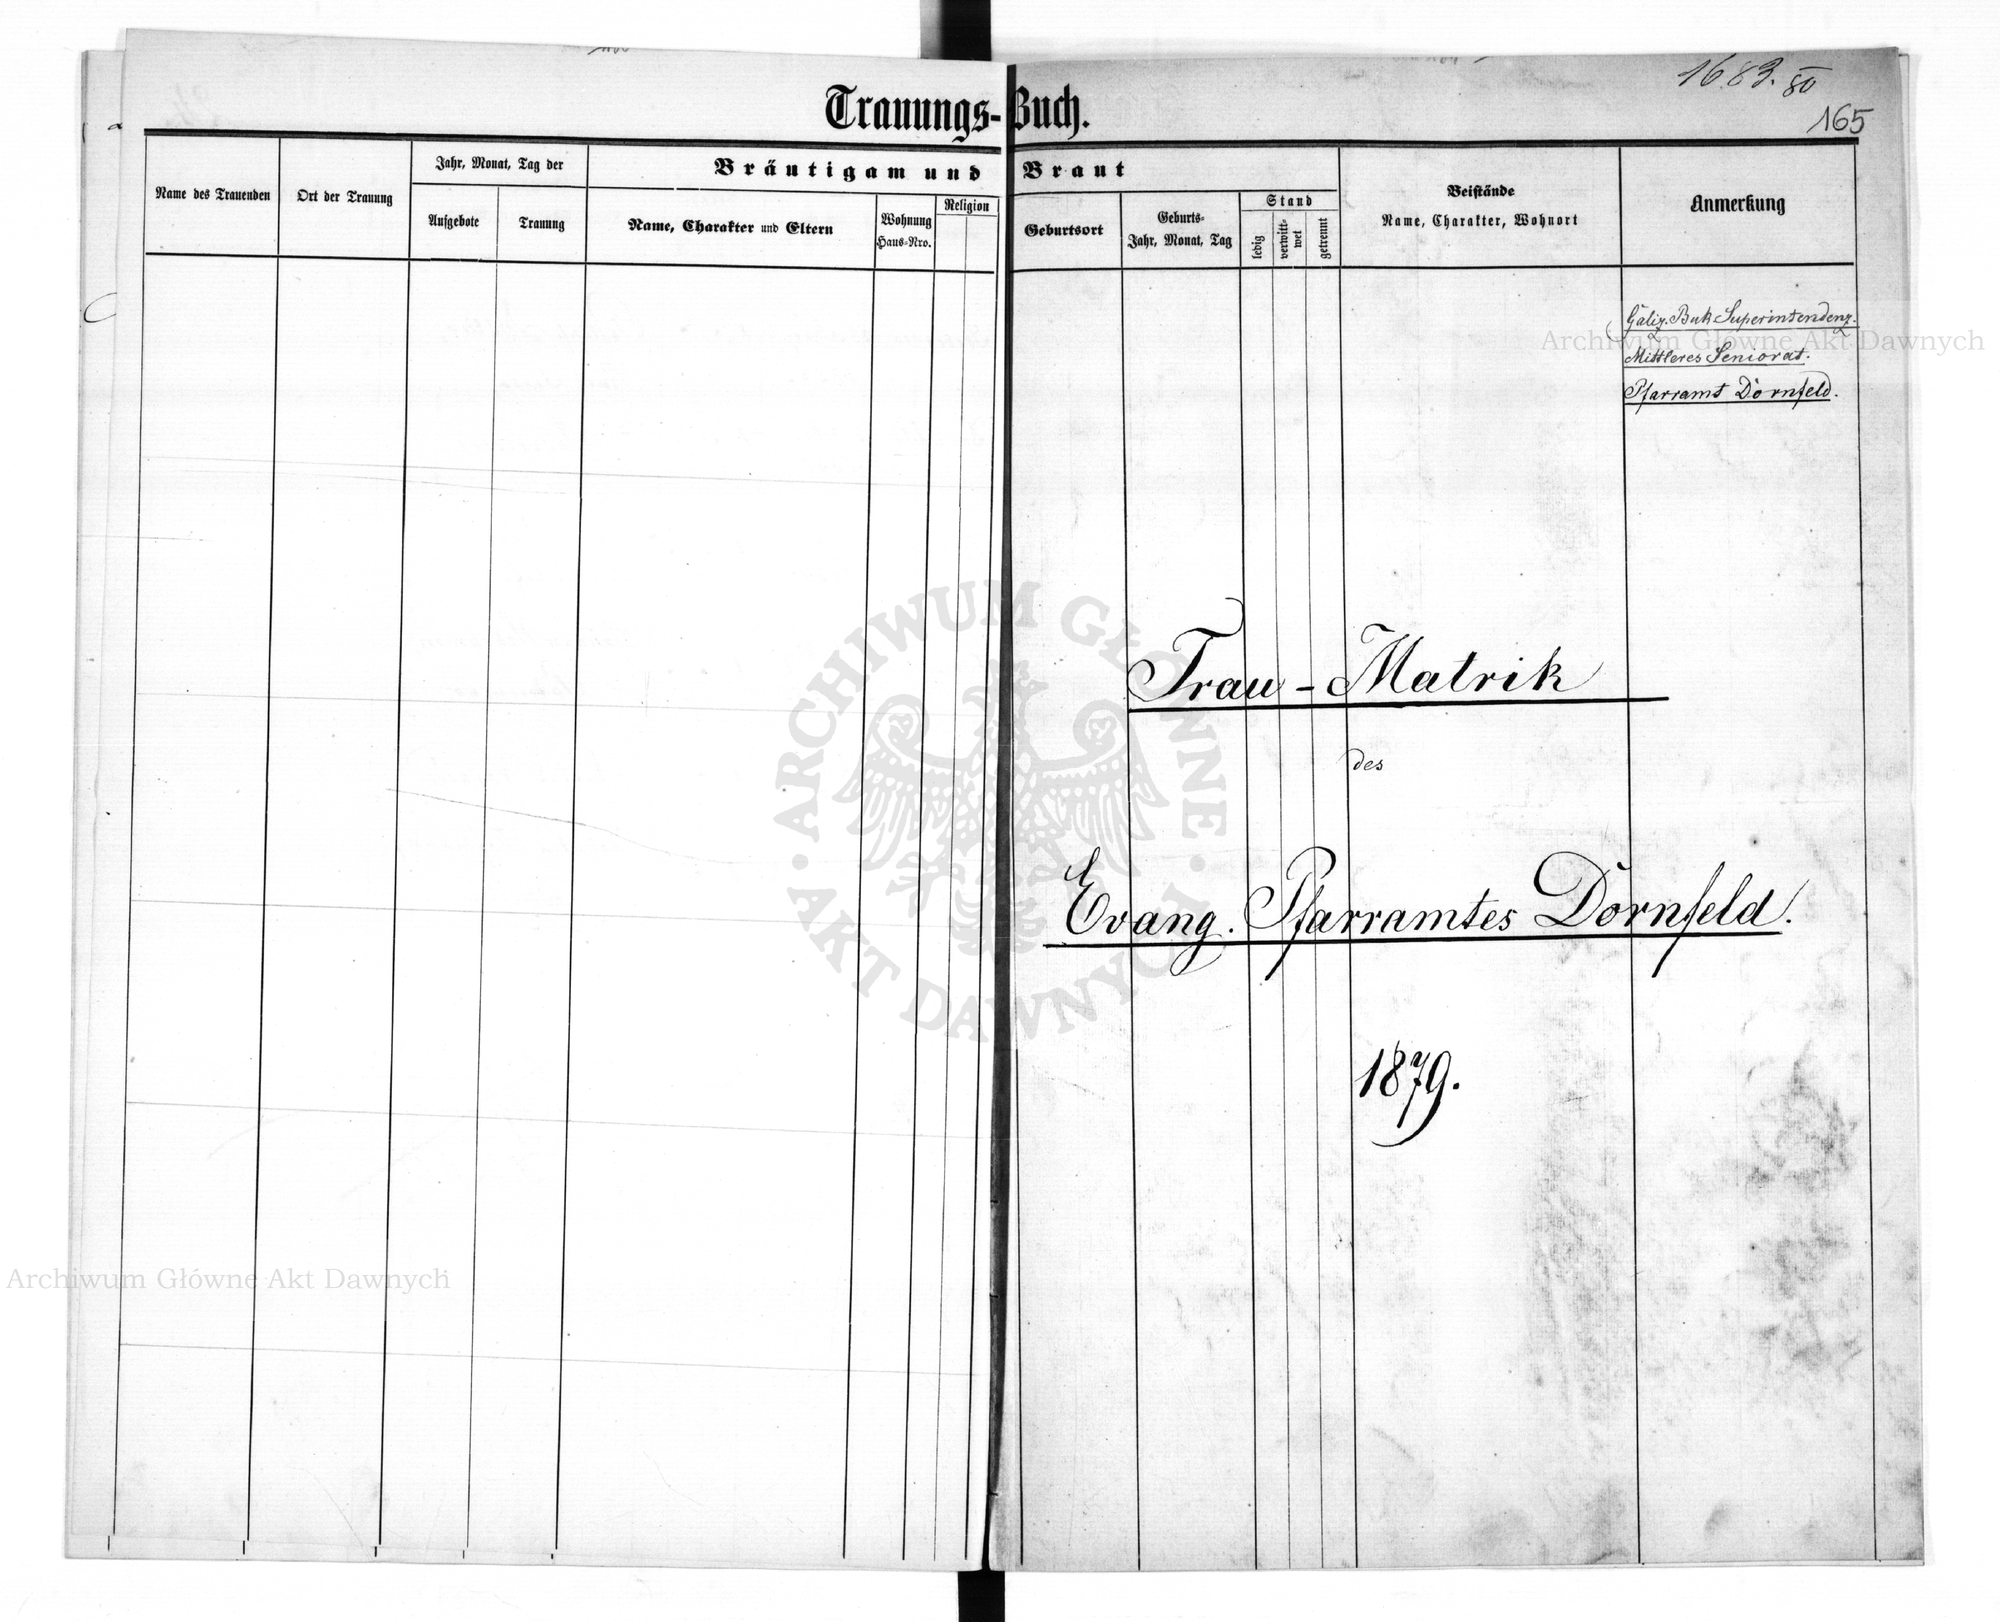 1683. 80
165
Trauungs-Buch.
Name des Trauenden
Ort der Trauung
Jahr, Monat, Tag der
Aufgebote
Trauung
Bräutigam und Braut
Name, Charakter und Eltern
Wohnung
Haus-Nro.
Religion
Geburtsort
Geburts-
Jahr, Monat, Tag
Stand
ledig
verwitt-
wet
getrennt
Beistände
Name, Charakter, Wohnort
Anmerkung
Galiz. Buk Superintendenz.
Mittleres Seniorat.
Pfarramt Dornfeld.
Trau - Matrik
des
Evang. Pfarramtes Dornfeld.
1879.
Archiwum Główne Akt Dawnych
ARCHIWUM GŁÓWNE · AKT DAWNYCH ·
Archiwum Główne Akt Dawnych